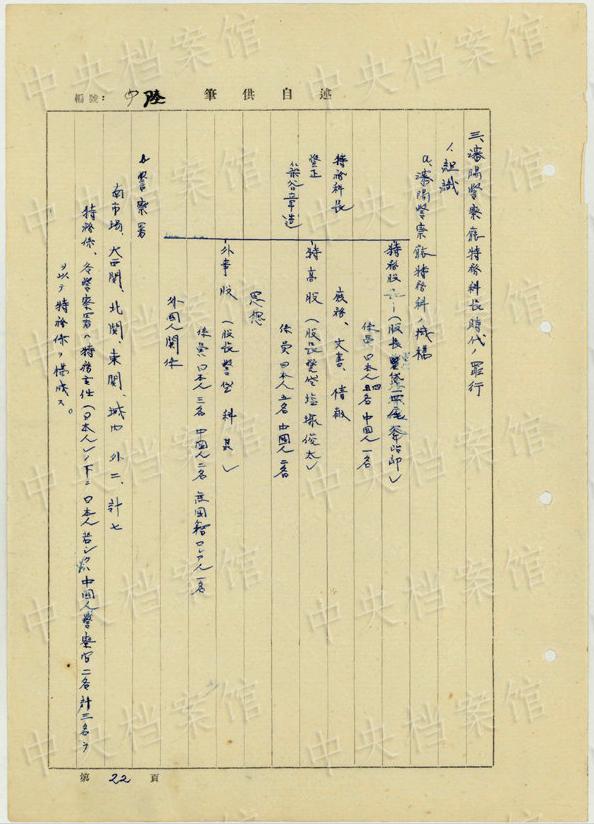 編號：
筆供自述
三、瀋陽警察廳特務科長時代ノ罪行
1、組織
a、瀋陽警察廳特務科ノ成構
特務科長
警正
染谷章造
特務股
庶務、文書、情報
係員 日本人 名 中国人一名
特高股（股長警佐塩塚俊太）
係員 日本人五名 中国人二名
思想
外事股（股長警佐 科某）
係員 日本人三名 中国人二名 無国籍ロシア人一名
外国人関係
b、警察署
南市場、大西関、北関、東関、城内 外二、計七
特務係、各警察署ハ特務主任（日本人）ノ下ニ日本人 中国人警察官二名計三名ヲ
以テ特務係ヲ構成ス。
第 22 頁
中央档案馆